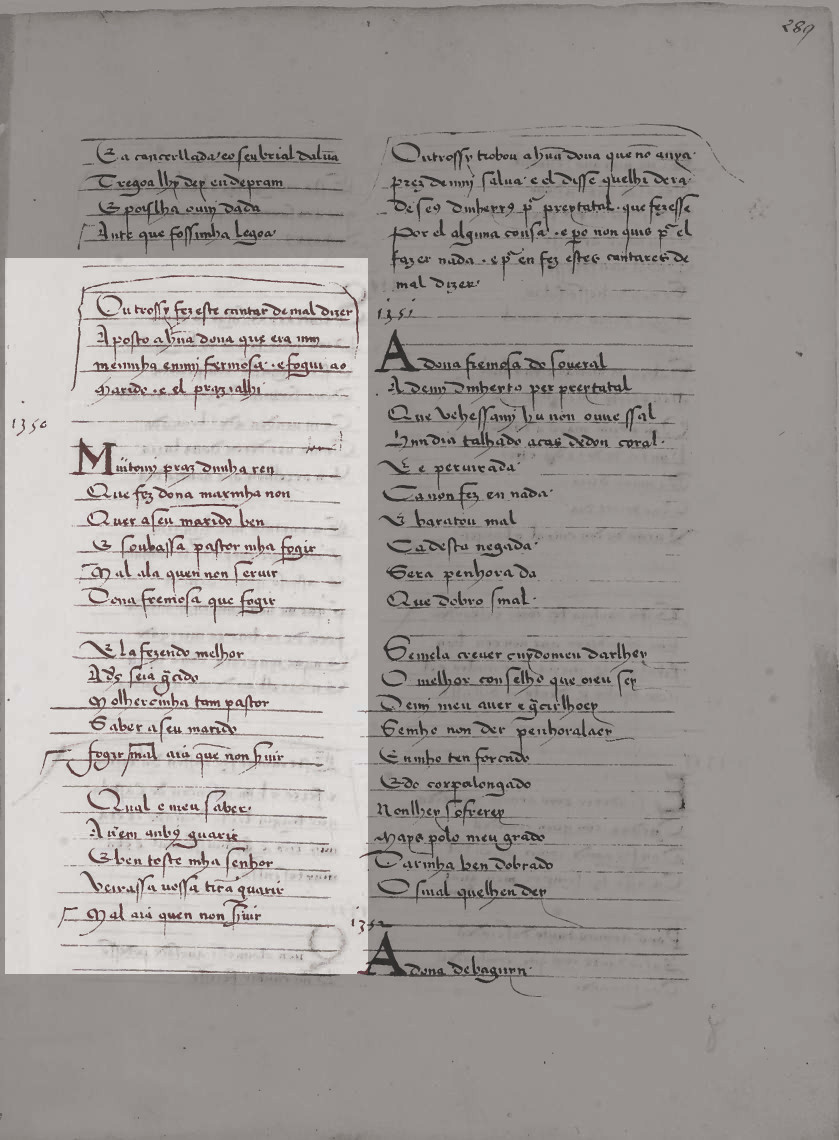 289
E a cancerllada eo seu brial daluã
Tregoa lhy dey en depram
E poys lha ouuy dada
Ante que fossimha legoa
Outrossy fez este cantar de mal dizer
Aposto a hũa dona que era mui
meninha e mui fermosa . e fogiu ao
marido . e el prazialhi
1350
Muitomi praz dunha ren
Que fez dona marinha non
Quer a seu marido ben
E soubassa pastor mha fogir
Mal ala quen non seruir
Dona fremosa que fogir
E la fezendo melhor
A ds seia gcido
Molherinha tam pastor
Saber a seu marido
fogir mal aia que non suir
Qual e meu saber
guarir
E ben toste mha senhor
Veirassa uossa guarir
Mal aia quen non suir
Outrossy trobou a hũa dona que nõ auya
prez de mui salua e el disse quelhi dera
de seus dinheyros pr preytatal que fezesse
Por el alguna cousa . e po non quis pr el
fazer nada . e pr en fez estes cantares de
mal dizer
1351
A dona fremosa do soueral
A demi dinheyro per preytatal
Que vehessami hu non ouuessal
Hun dia talhado a cas dedon coral
E e periurada
Ca non fez en nada
E baratou mal
Ca desta negada
Sera penhorada
Que dobro sinal
Semela creuer cuydomeu darlhey
O melhor conselho que oieu sey
Demi meu auer e gcirlhoey
Semho non der penhoralaey
E mho ten forçado
E do corpalongado
Nonlhey sofrerey
Mays polo meu grado
Darmha ben dobrado
O sinal quelhen dey
1352
A dona debaguyn